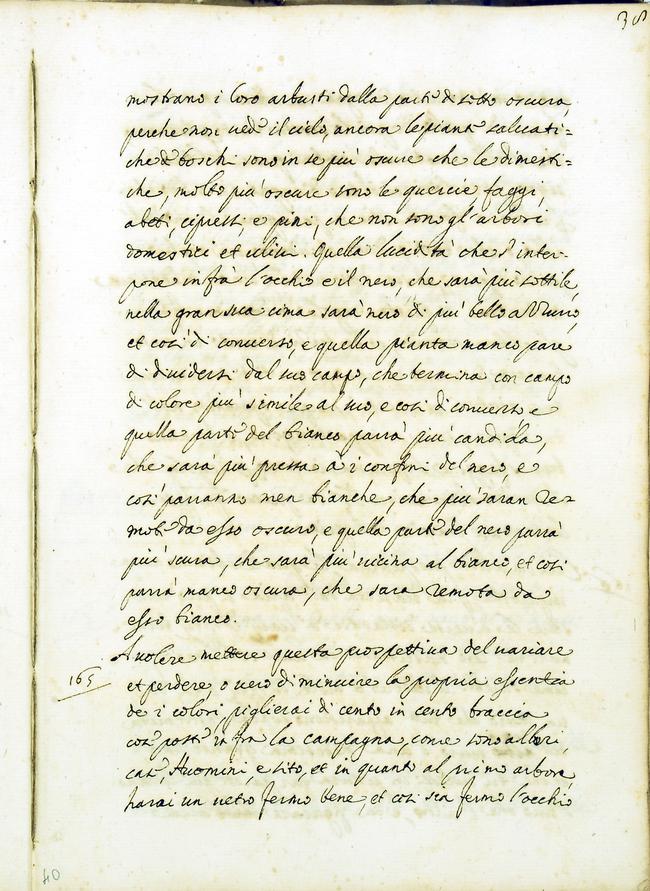 38
mostrano i loro arbusti dalla parte di sotto oscura,
perche non uede il cielo, ancora le piante saluati=
che de boschi sono in se più oscure che le dimesti=
che, molto più oscure sono le quercie faggi,
abeti, cipressi, e pini, che non sono gl'arbori
domestici et uliui. Quella lucidità che s'inter-
pone infrà l'occhio e il nero, che sarà più sottile,
nella gran sua cima sarà nero di più bello azzurro,
et così di conuerso, e quella pianta manco pare
di diuidersi dal suo campo, che termina con campo
di colore più simile al suo, e così di conuerso e
quella parte del bianco parrà più candida,
che sarà più pressa à i confini del nero, e
così parranno men bianche, che più saran re=
mote da esso oscuro, e quella parte del nero parrà
più scura, che sarà più uicina al bianco, et così
parrà manco oscura, che sara remota da
esso bianco.
A uolere mettere questa prospettiua del uariare
165
et perdere, o uero diminuire la propria essentia
de i colori, piglierai di cento in cento braccia
cose poste infra la campagna, come sono alberi,
case, Huomini, e sito, et in quanto al primo arbore,
harai un uetro fermo bene, et così sia fermo l'occhio
40